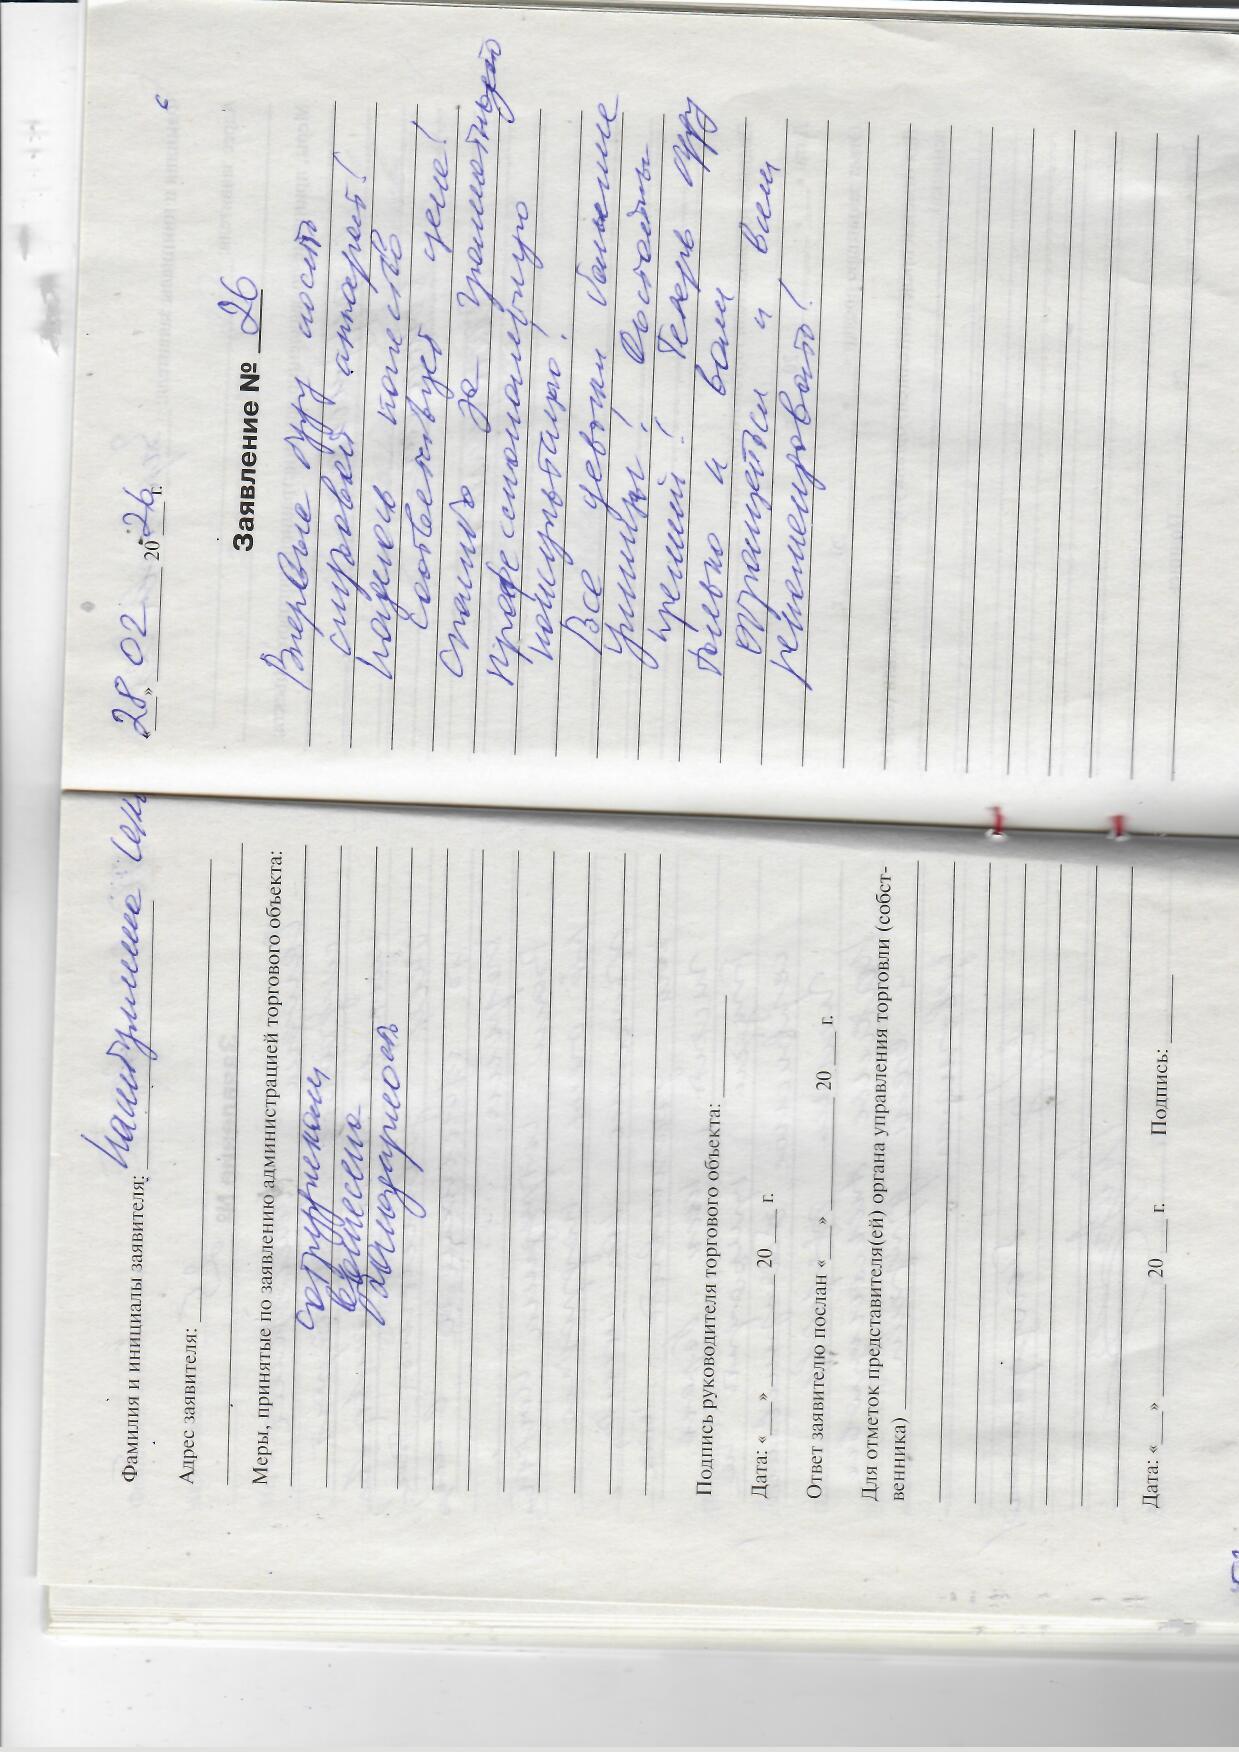 Фамилия и инициалы заявителя:
Адрес заявителя:
Меры, принятые по заявлению администрацией торгового объекта:
сотрудникам
вынесена
благодарность
Подпись руководителя торгового объекта:
Дата: «___» ________ 20___г.
Ответ заявителю послан «___» ________ 20___г.
Для отметок представителя(ей) органа управления торговли (собст-
венника)
Дата: «___» ________ 20___г. Подпись:
28 » 02 2026 г.
Заявление № 26
Впервые буду носить
слуховой аппарат!
Надеюсь качество
соответствует цене!
Спасибо за грамотную
профессиональную
консультацию!
Все девочки большие
умницы!
премий! Теперь буду
только к вам
обращаться и всем
рекомендовать!